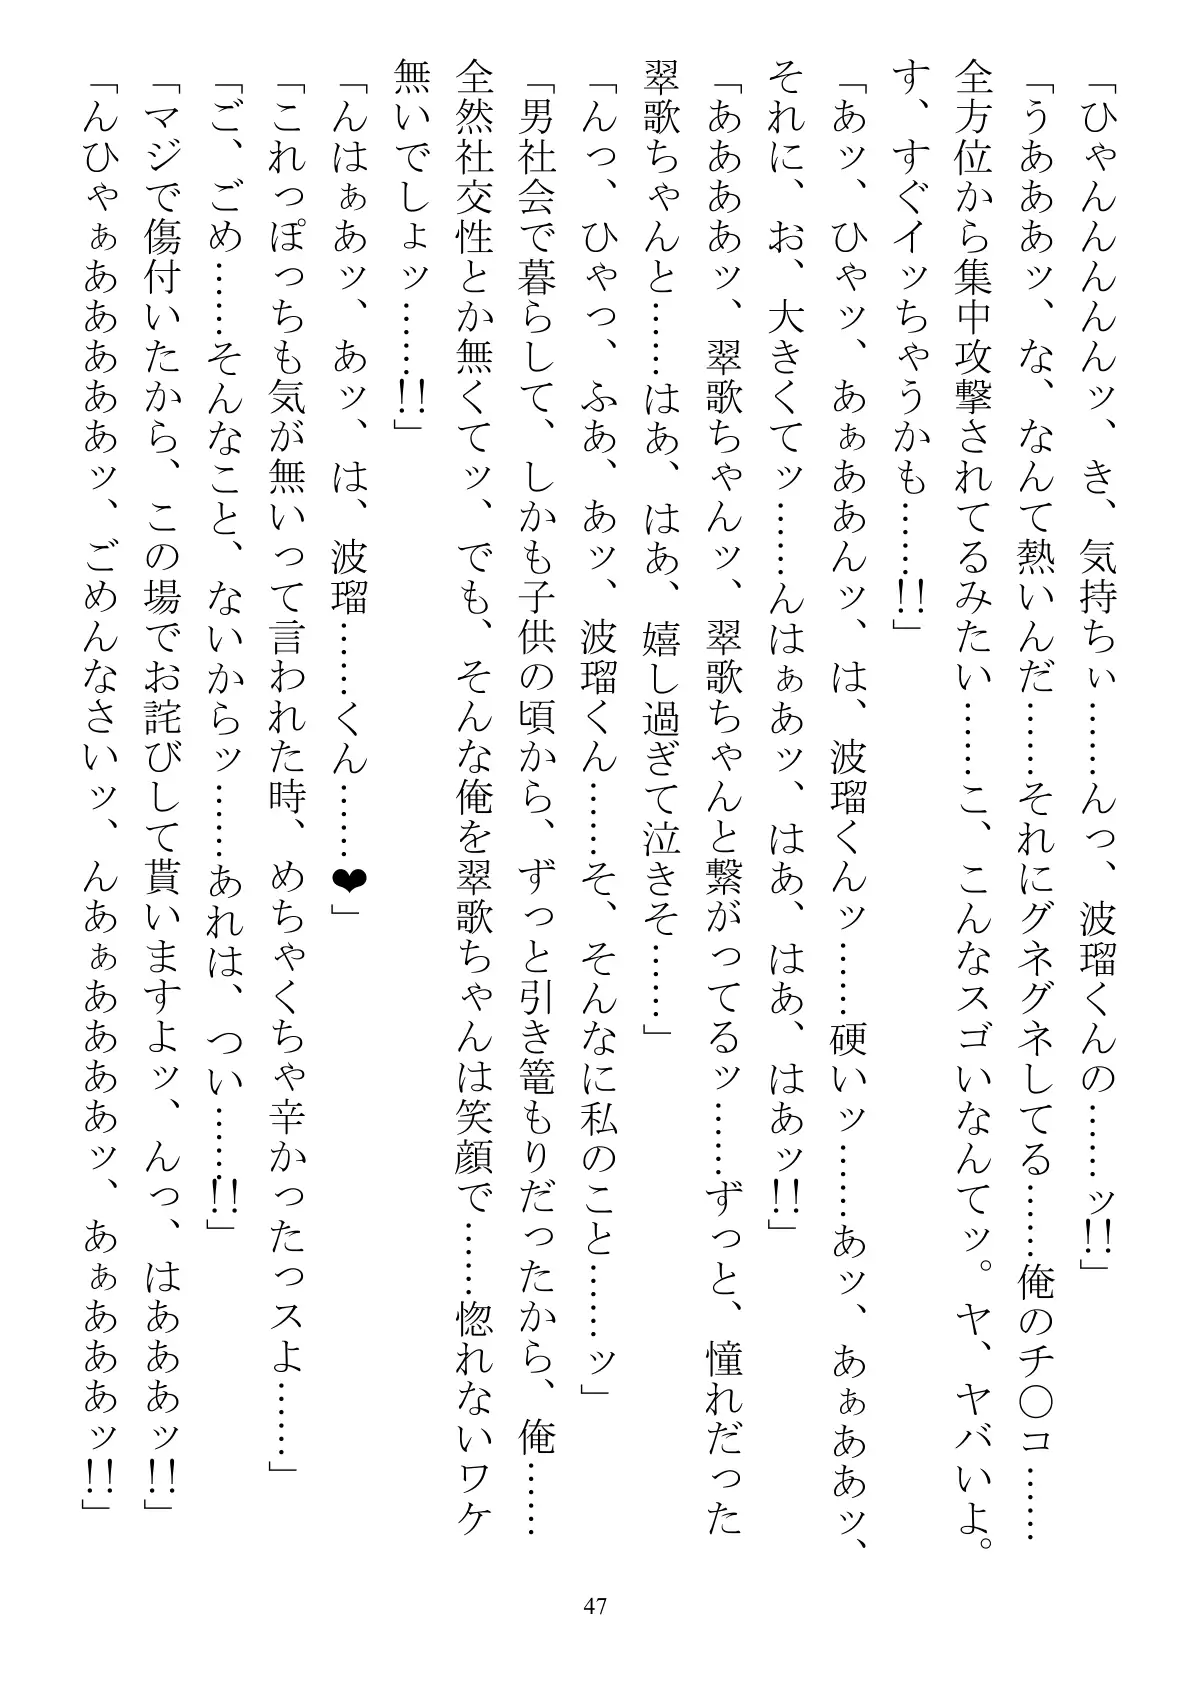 「ひゃんんんんッ、き、気持ちぃ……んっ、波瑠くんの……ッ!!」
「うあああッ、な、なんて熱いんだ……それにグネグネしてる……俺のチ〇コ……
全方位から集中攻撃されてるみたい……こ、こんなスゴいなんてッ。ヤ、ヤバいよ。
す、すぐイッちゃうかも……!!」
「あッ、ひゃッ、あぁああんッ、は、波瑠くんッ……硬いッ……あッ、あぁああッ、
それに、お、大きくてッ……んはぁあッ、はあ、はあ、はあッ!!」
「ああああッ、翠歌ちゃんッ、翠歌ちゃんと繋がってるッ……ずっと、憧れだった
翠歌ちゃんと……はあ、はあ、嬉し過ぎて泣きそ……」
「んっ、ひゃっ、ふあ、あッ、波瑠くん……そ、そんなに私のこと……ッ」
「男社会で暮らして、しかも子供の頃から、ずっと引き篭もりだったから、俺……
全然社交性とか無くてッ、でも、そんな俺を翠歌ちゃんは笑顔で……惚れないワケ
無いでしょッ……!!」
「んはぁあッ、あッ、は、波瑠……くん……❤」
「これっぽっちも気が無いって言われた時、めちゃくちゃ辛かったっスよ……」
「ご、ごめ……そんなこと、ないからッ……あれは、つい……!!」
「マジで傷付いたから、この場でお詫びして貰いますよッ、んっ、はあああッ!!」
「んひゃぁああああああッ、ごめんなさいッ、んあぁああああッ、あぁああああッ!!」
47